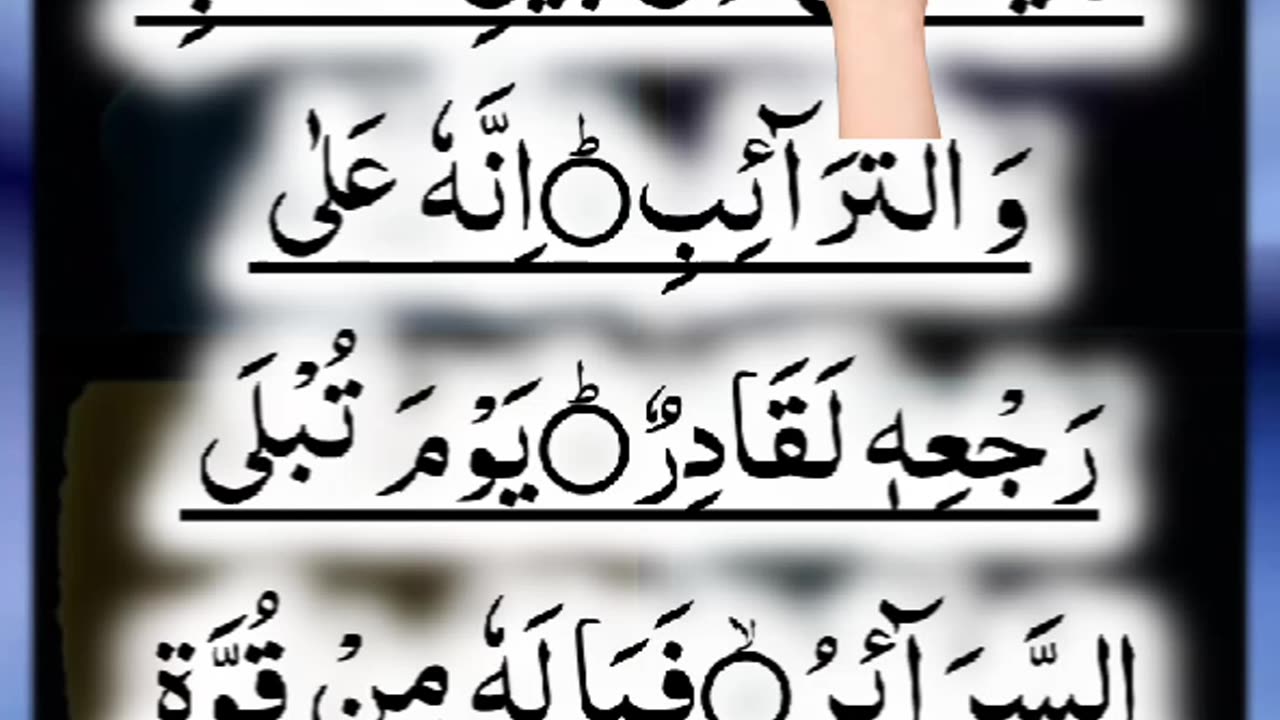 وَ التَّرَآئِبِ۝ؕ اِنَّهٗ عَلٰى
رَجْعِهٖ لَقَادِرٌ۝ؕ يَوْمَ تُبْلَى
السَّرَآئِرُ۝ۙ فَمَا لَهٗ مِنْ قُوَّةٍ